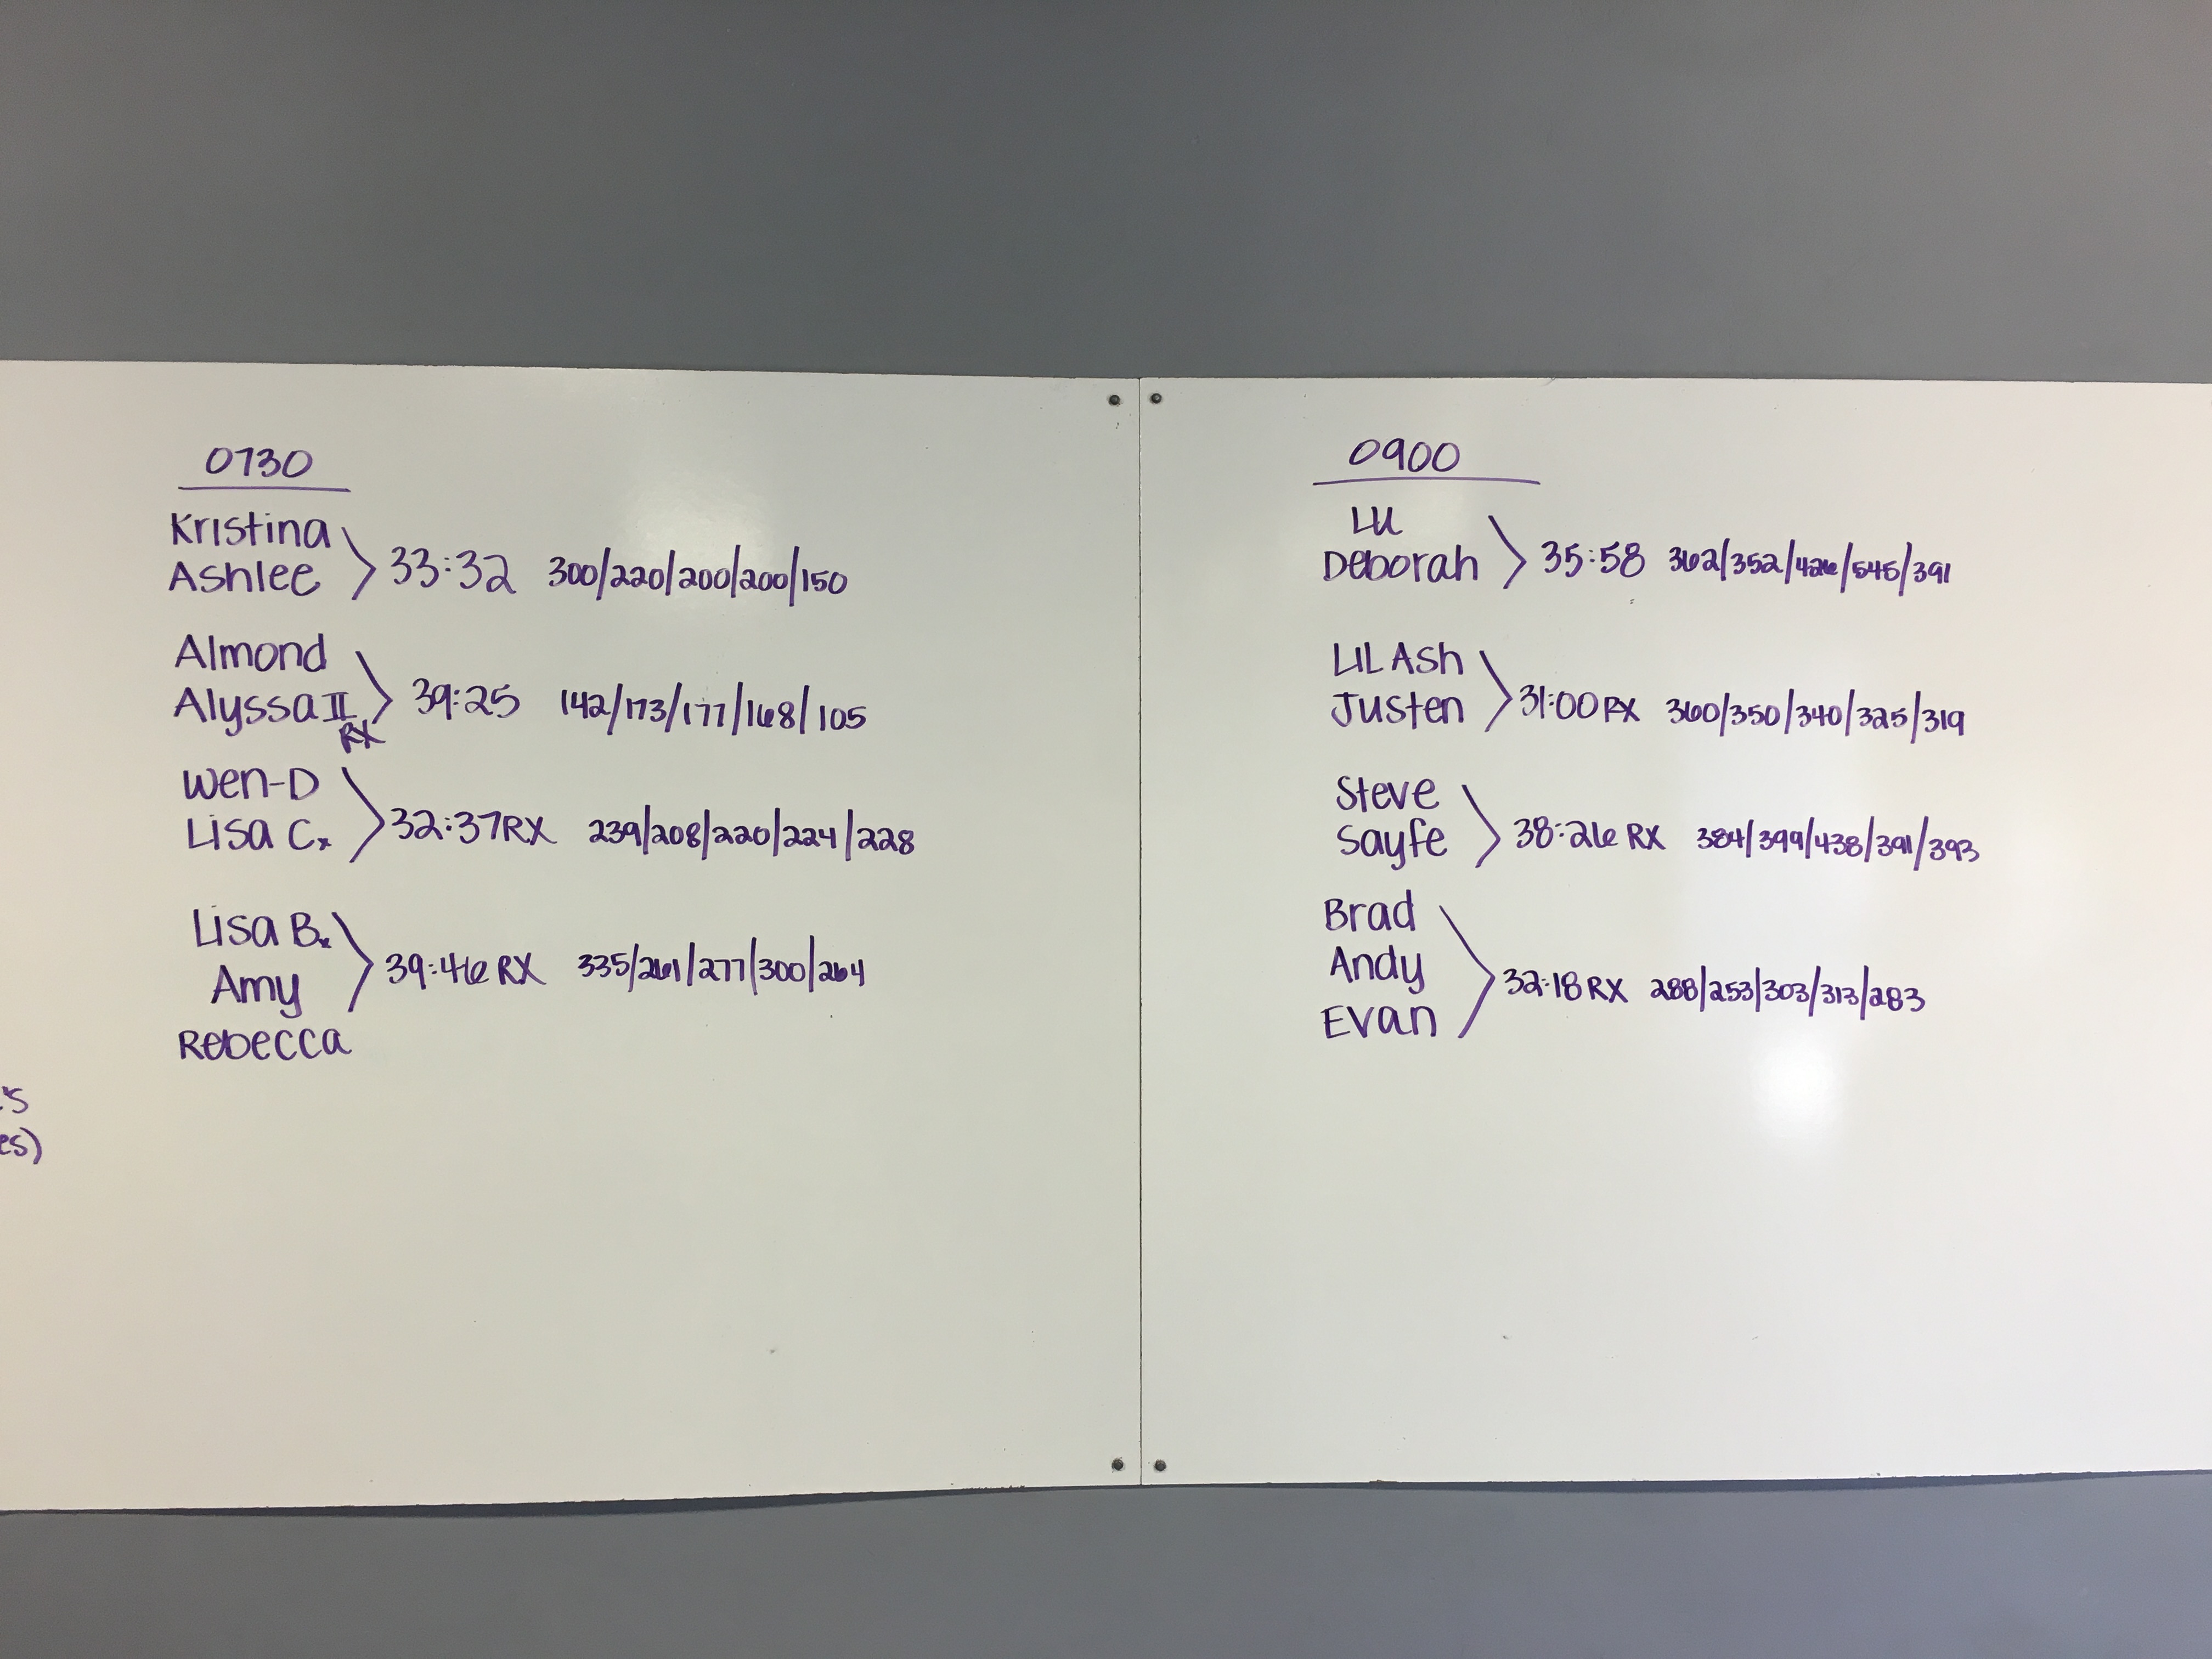 0730
Kristina
Ashlee
33:32 300/220/200/200/150
Almond
Alyssa II
RX
39:25 142/173/177/168/105
Wen-D
Lisa C.
32:37 RX 239/208/220/224/228
Lisa B.
Amy
39:46 RX 335/261/277/300/264
Rebecca
0900
LU
Deborah
35:58 362/352/426/545/391
LIL Ash
Justen
31:00 RX 360/350/340/325/319
Steve
Sayfe
38:26 RX 384/399/438/391/393
Brad
Andy
Evan
32:18 RX 288/253/303/313/283